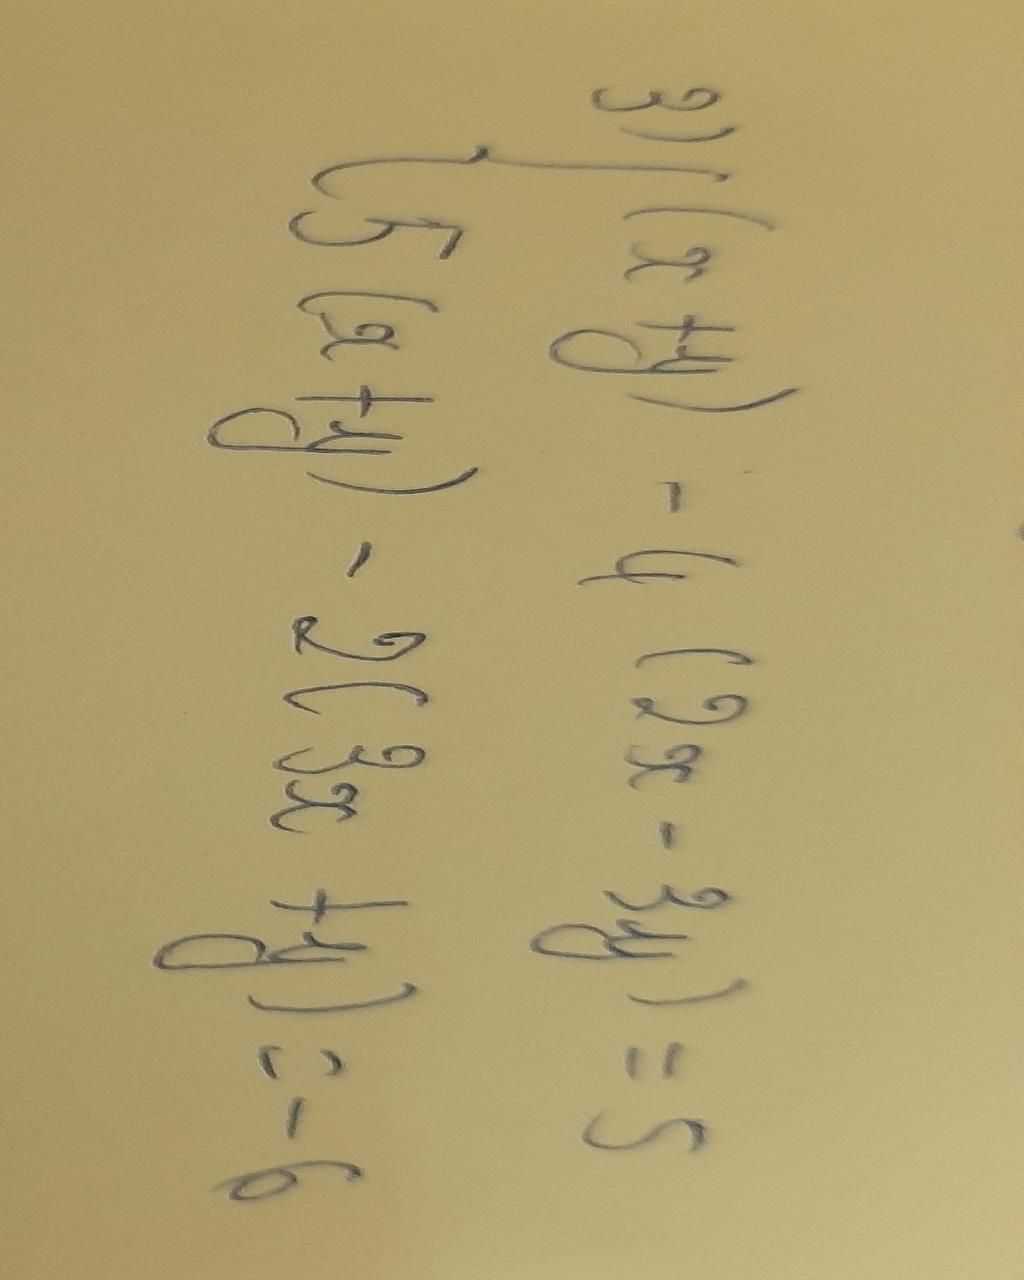 3) { (x + y) - 4 (2x - 3y) = 5
5 (x + y) - 2 (3x + y) = -6